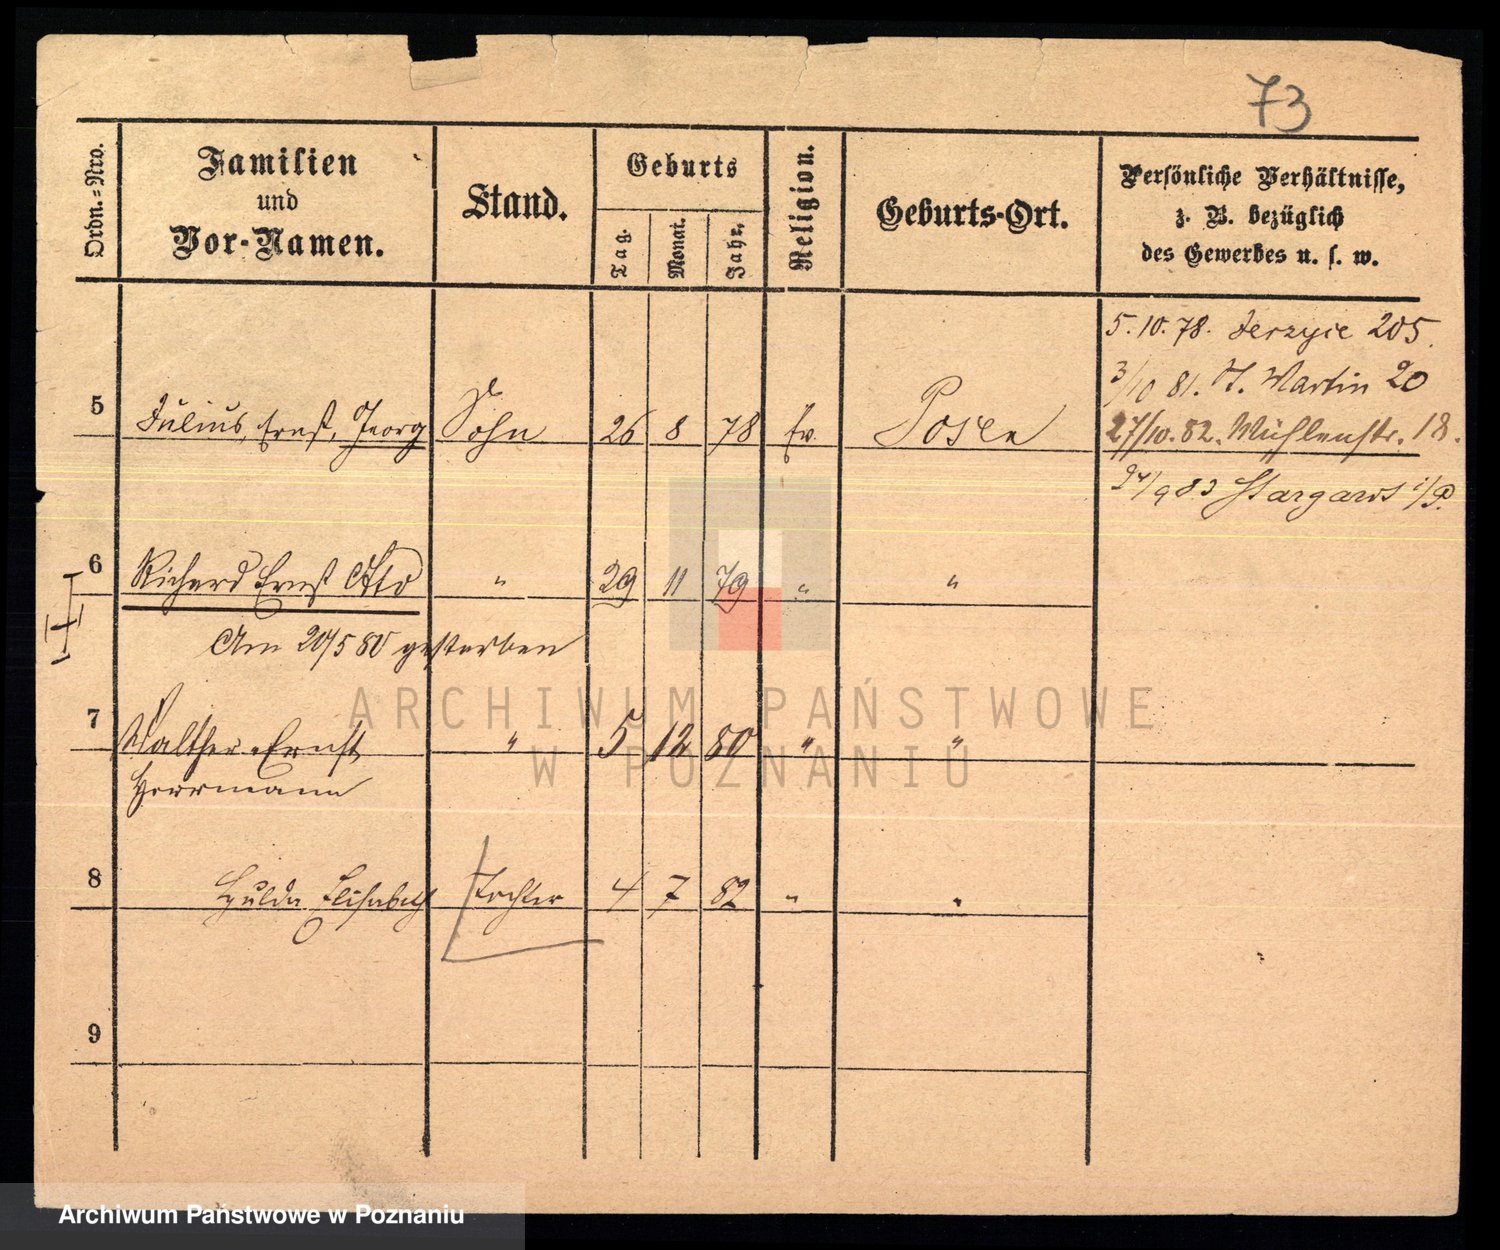 73
Ordn.-Nro.
Familien
und
Vor-Namen.
Stand.
Geburts
Tag.
Monat.
Jahr.
Religion.
Geburts-Ort.
Persönliche Verhältnisse,
z. B. bezüglich
des Gewerbes u. s. w.
5.10.78. Jerzyce 205.
3/10 81. St. Martin 20
5 Julius, Ernst, Georg Sohn 26 8 78 Ev. Posen
27/10.82. Mühlenstr. 18.
24/9 83 Stargard i/P.
6 Richard Ernst Otto " 29 11 79 " "
Am 20/5 80 gestorben
7 Walther Ernst " 5 12 80 " "
Herrmann
8 Hulda Elisabeth Tochter 4 7 82 " "
9
ARCHIWUM PAŃSTWOWE
W POZNANIU
Archiwum Państwowe w Poznaniu